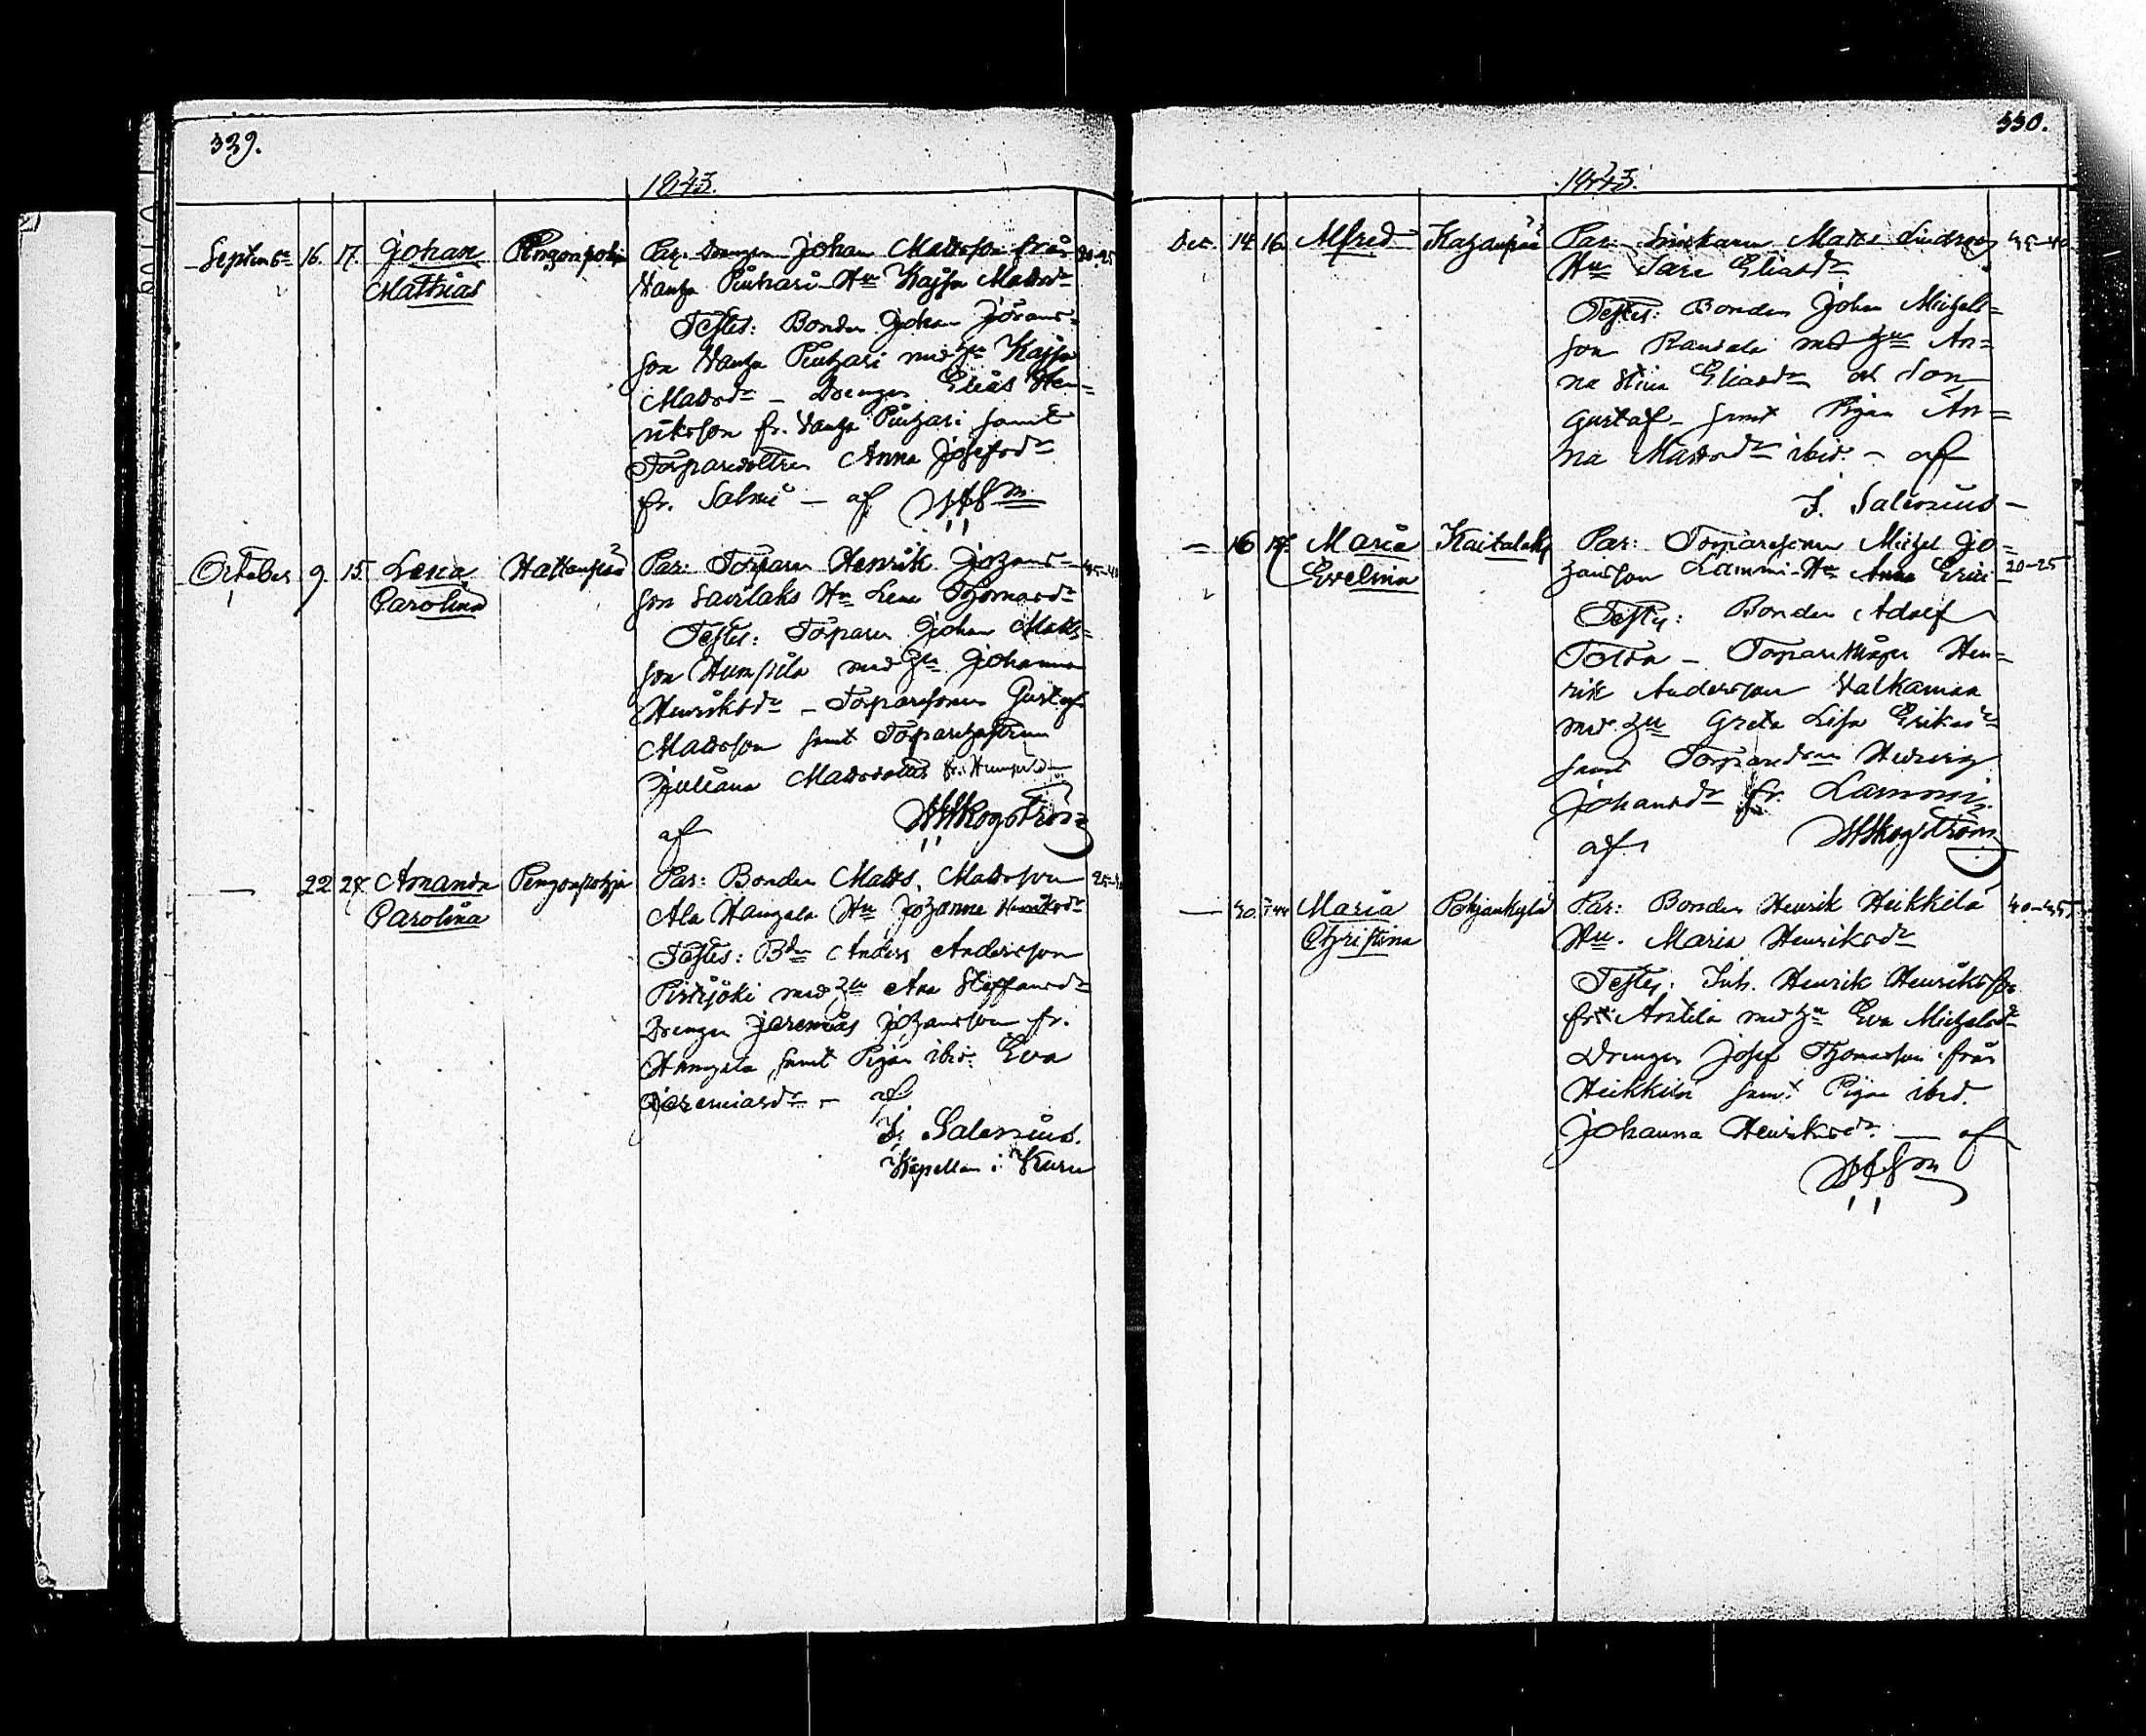 339.
1843.
Septembr 16. 17. Johan Mathias Pengonpohja
Par. Drengen Johan Mattsson från 20-25
Vanha Piuhari Hu Kajsa Mattsdr
Testes: Bonden Johan Johans=
son Vanha Piuhari med hu Kajsa
Mattsdr – Drengen Elias Hen=
riksson fr. Vanha Piuhari samt
Torparedottren Anna Josefsdr
fr. Salmi – af
October 9. 15. Lena Carolina
Par: Torparen Henrik Johans=
son Savilaks Hu Lena Thomasdr
Testes: Torparen Johan Matts=
son Humpila med hu Johanna
Henriksdr – Torparesonen Gustaf
Mattsson samt Torparehustrun
Juliana Mattsdotter
af Skogström
— 22 24. Amanda Carolina Pengonpohja
Par: Bonden Matts Mattsson 25-30
Ala Hangala Hu Johanna Henriksdr
Testes: Bdn Anders Andersson
med hu Ana Steffansdr
Drengen Jeremias Johansson fr.
Hangala, samt Pigan ibid. Eva
Jeremiasdr – af
J. Salenius.
Kapellan i Kuru
330.
1843.
Dec. 14 16. Alfred
Par. Matts Lindroos
Hu Sara Eliasdr
Testes: Bonden Johan Michels=
son Rantala med hu An=
na Stina Eliasdr och Son
Gustaf – samt Pigan An=
na Mattsdr ibid. – af
J. Salenius –
— 16 17. Maria Evelina Kaitalaks
Par: Torparesonen Michel Jo=
hansson Lammi Hu Anna Eric 20-25
Testes: Bonden Adolf
Tolva – Hen=
rik Andersson Valkaman
med hu Greta Lisa Eriksdr
samt Hedvig
Johansdr fr. Lammi.
af Skogström
— 30. Maria Christina Pohjankylä
Par: Bonden Henrik Heikkilä 40-45
Hu. Maria Henriksdr
Testes: Inh. Henrik Henriksson
fr. Anttila med hu Eva Michelsdr
Drengen Josef Thomasson från
Heikkilä samt Pigan ibid.
Johanna Henriksdr. — af